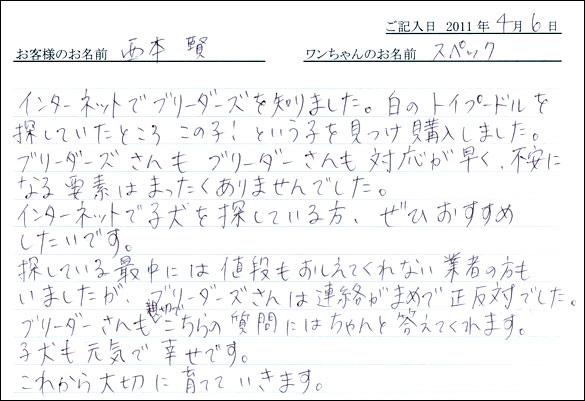 ご記入日 2011年4月6日
お客様のお名前 西本 賢 ワンちゃんのお名前 スペック
インターネットでブリーダーズを知りました。白のトイプードルを
探していたところ この子！という子を見つけ購入しました。
ブリーダーズさんも ブリーダーさんも 対応が早く、不安に
なる要素はまったくありませんでした。
インターネットで子犬を探している方、ぜひおすすめ
したいです。
探している最中には値段もおしえてくれない業者の方も
いましたが、ブリーダーズさんは連絡がまめで正反対でした。
ブリーダーさんも親切でこちらの質問にはちゃんと答えてくれます。
子犬も元気で幸せです。
これから大切に育てていきます。